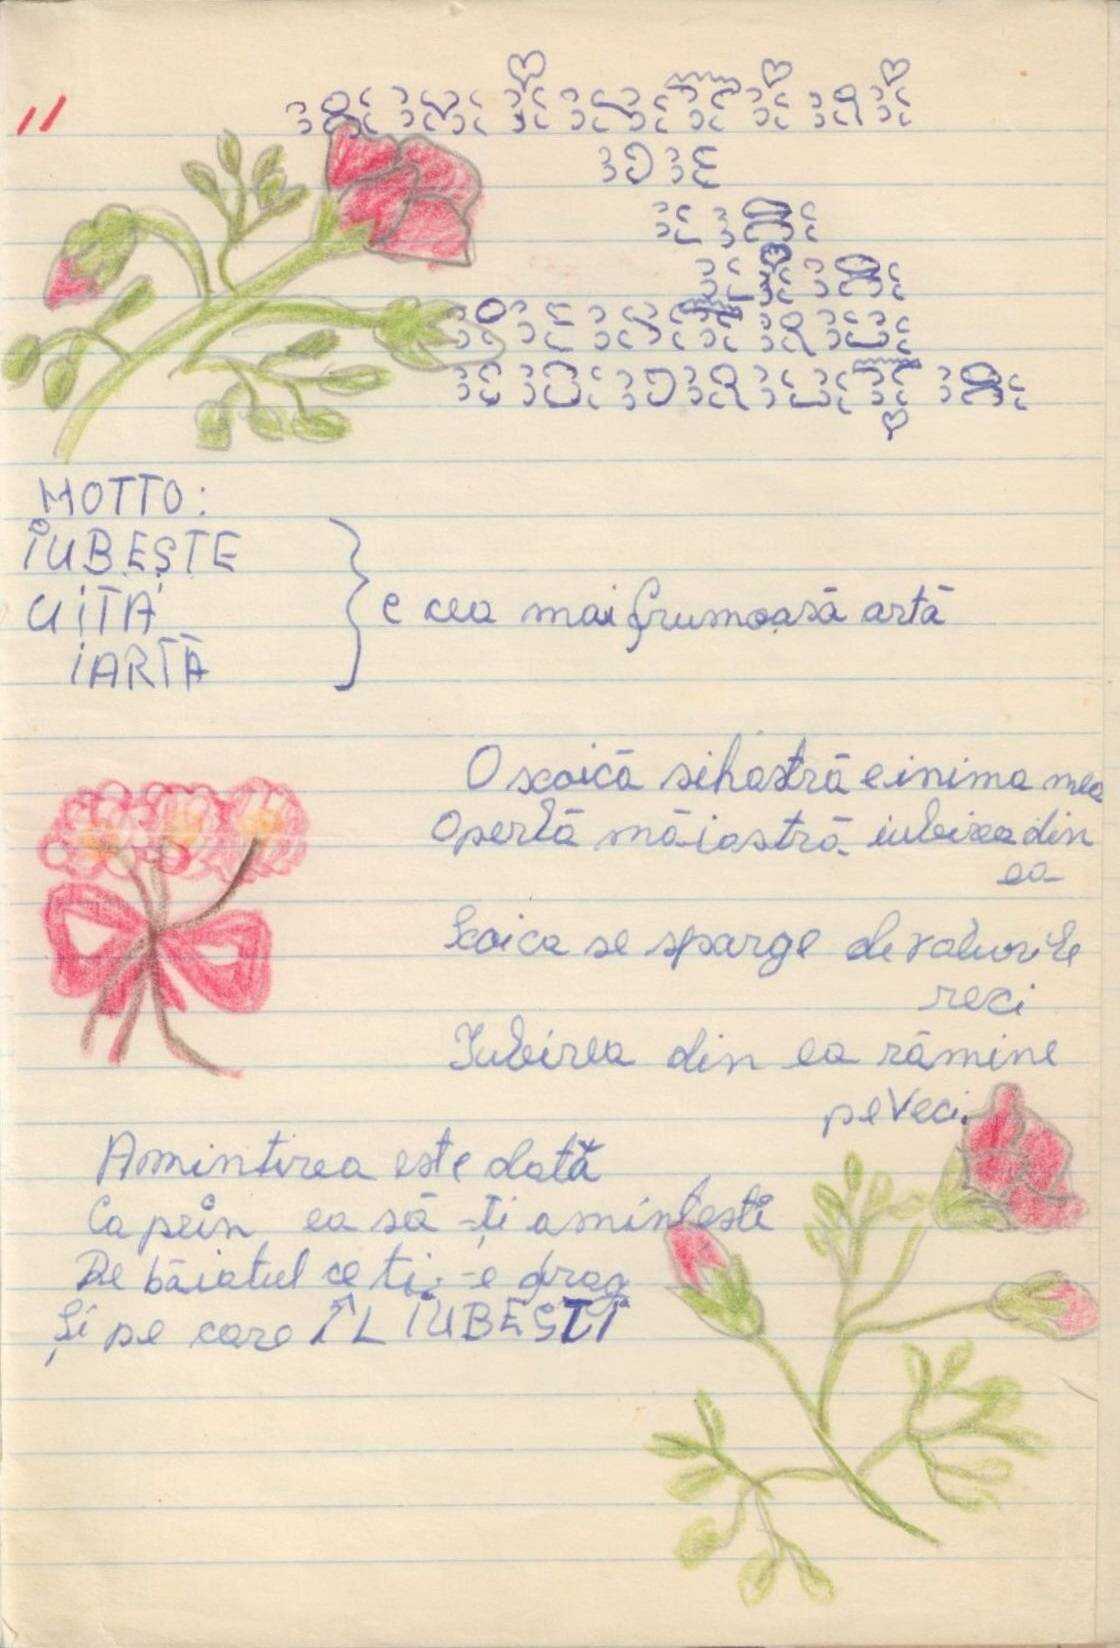 11
AMINTIRI
DE
LA
LIA
PENTRU
CODRUȚA
MOTTO:
ÎUBEȘTE
UiTĂ
iARTĂ
e cea mai frumoasă artă
O scoică sihastră e inima mea
O perlă măiastră iubirea din
ea
Scoica se sparge de valurile
reci
Iubirea din ea rămîne
pe veci.
Amintirea este dată
Ca prin ea să-ți amintești
De băiatul ce ți-e drag
Și pe care ÎL ÎUBEȘTI